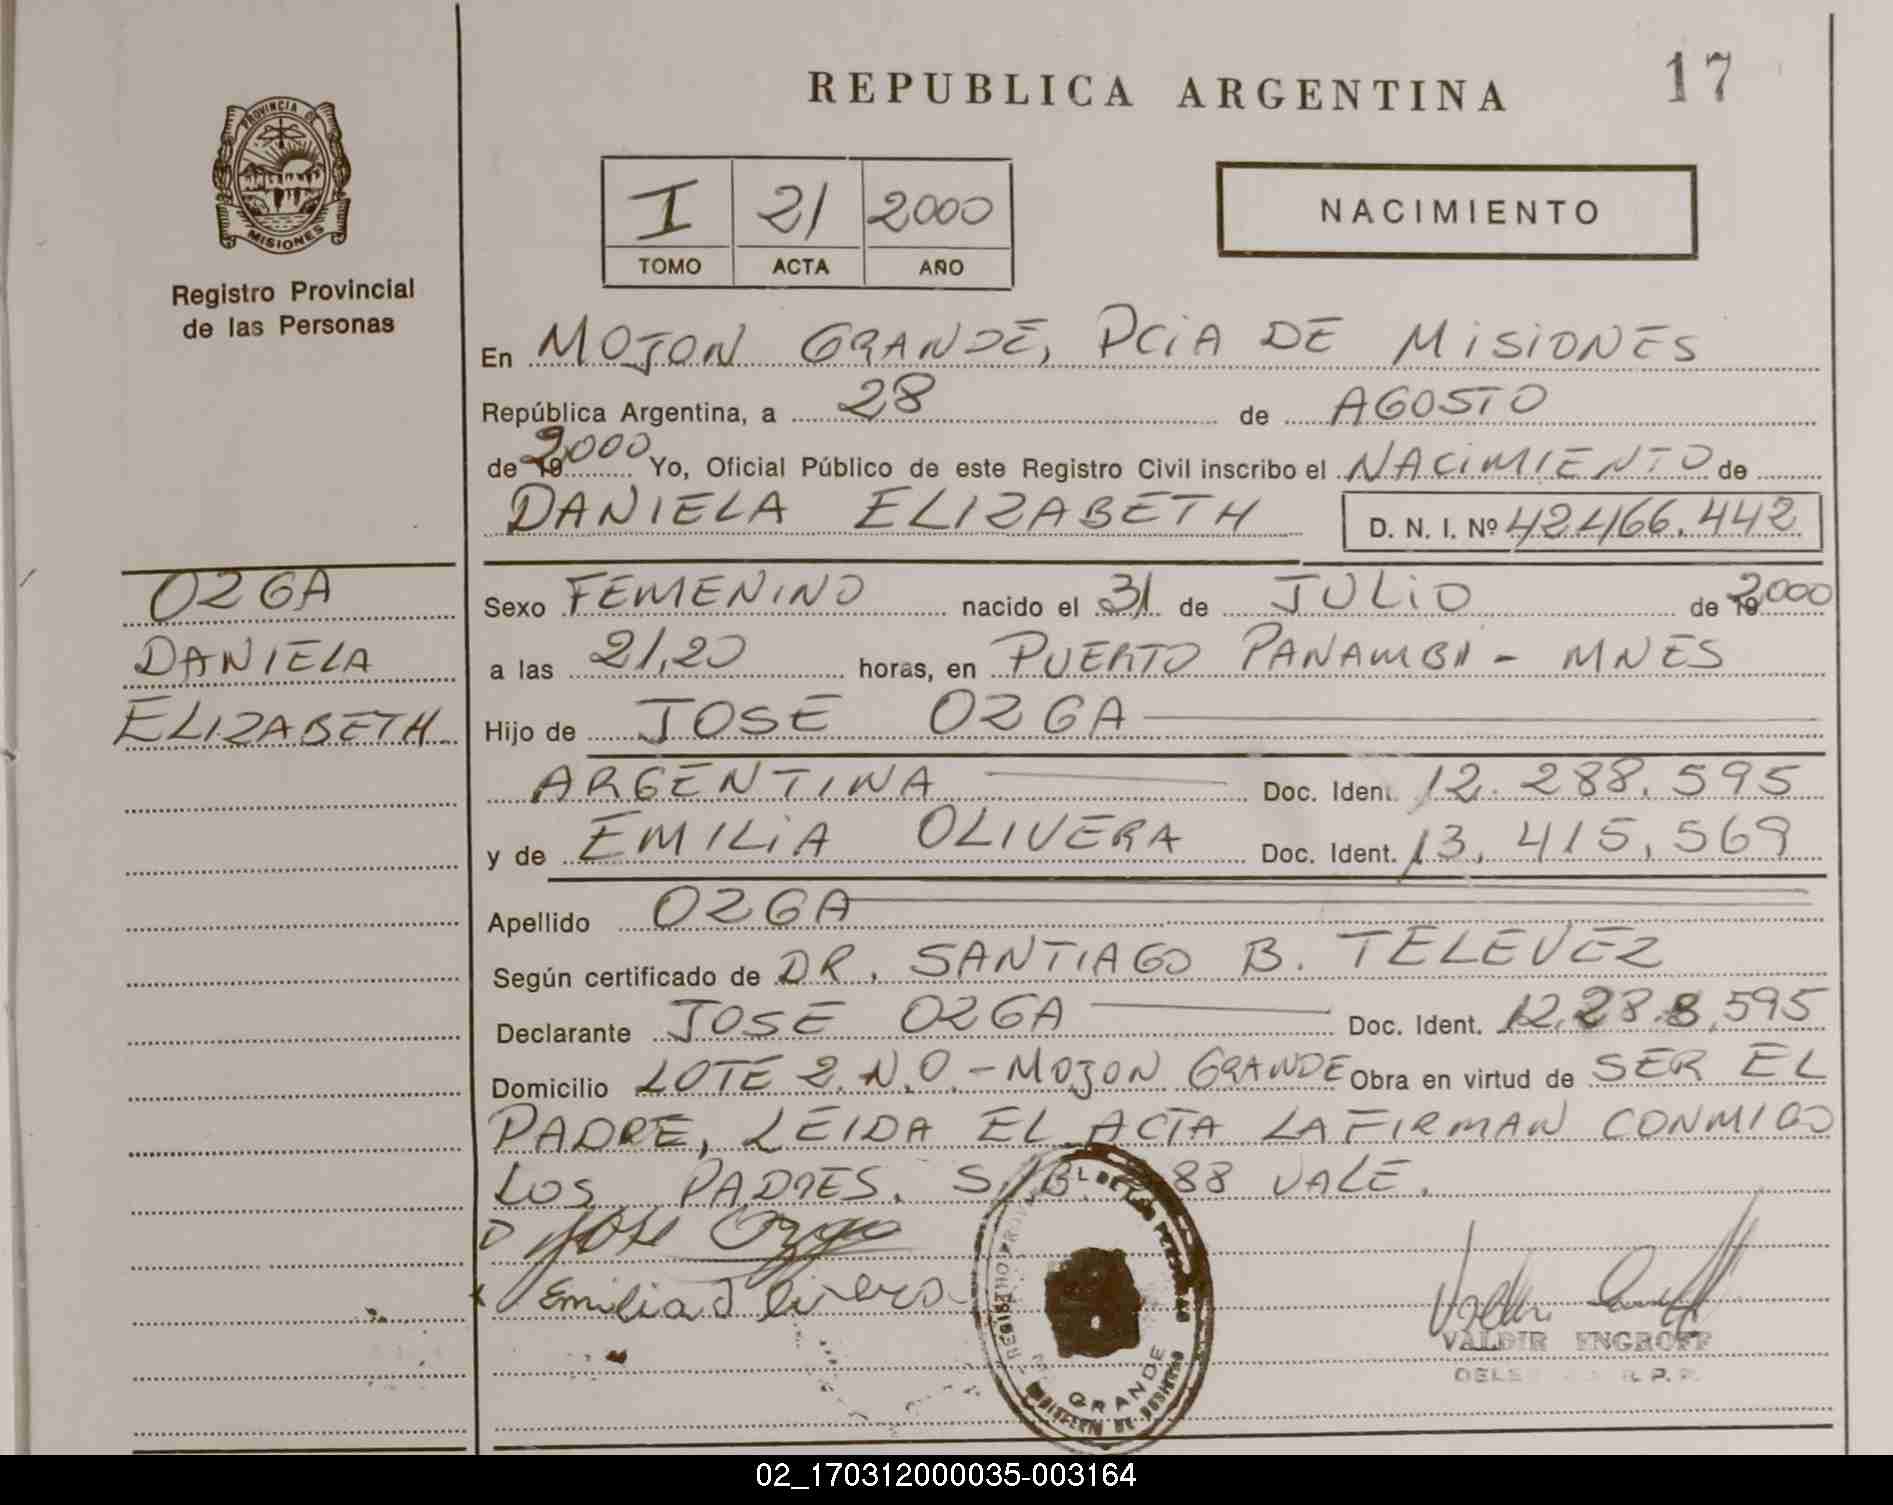 17
REPUBLICA ARGENTINA
PROVINCIA DE
MISIONES
Registro Provincial
de las Personas
I 21 2000
TOMO ACTA AÑO
NACIMIENTO
En MOJON GRANDE, PCIA DE MISIONES
República Argentina, a 28 de AGOSTO
de 2000 Yo, Oficial Público de este Registro Civil inscribo el NACIMIENTO de
DANIELA ELIZABETH D. N. I. Nº 42.466.442
OZGA
DANIELA
ELIZABETH
Sexo FEMENINO nacido el 31 de JULIO de 2000
a las 21,20 horas, en PUERTO PANAMBI - MNES
Hijo de JOSE OZGA
ARGENTINA Doc. Ident. 12.288.595
y de EMILIA OLIVERA Doc. Ident. 13.415.569
Apellido OZGA
Según certificado de DR. SANTIAGO B. TELEVEZ
Declarante JOSE OZGA Doc. Ident. 12.288.595
Domicilio LOTE 2 N.O. - MOJON GRANDE Obra en virtud de SER EL
PADRE, LEIDA EL ACTA LA FIRMAN CONMIGO
LOS PADRES. S./B. 88 VALE.
Jose Ozga
Emilia Olivera
GRANDE
VALDIR ENGROFF
02_170312000035-003164